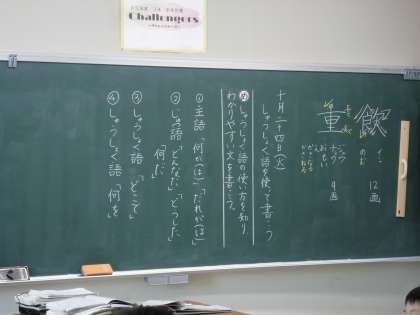 Challengers
飲
イン
のむ
12画
重
ジュウ
チョウ
おもい
かさねる
かさなる
9画
十月二十四日(火)
しゅうしょく語を使って書こう
しゅうしょく語の使い方を知り
わかりやすい文を書こう。
①主語「何が(は)」「だれが(は)」
②じゅつ語「どんなだ」「どうした」
「何だ」
③しゅうしょく語「どこで」
④しゅうしょく語「何を」